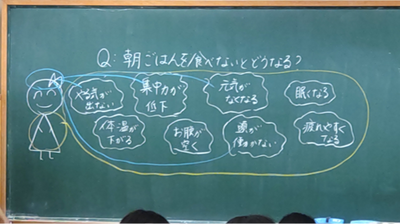 Q:朝ごはんを食べないとどうなる?
やる気が
出ない
集中力が
低下
元気が
なくなる
眠くなる
体温が
下がる
お腹が
空く
頭が
働かない
疲れやすく
なる